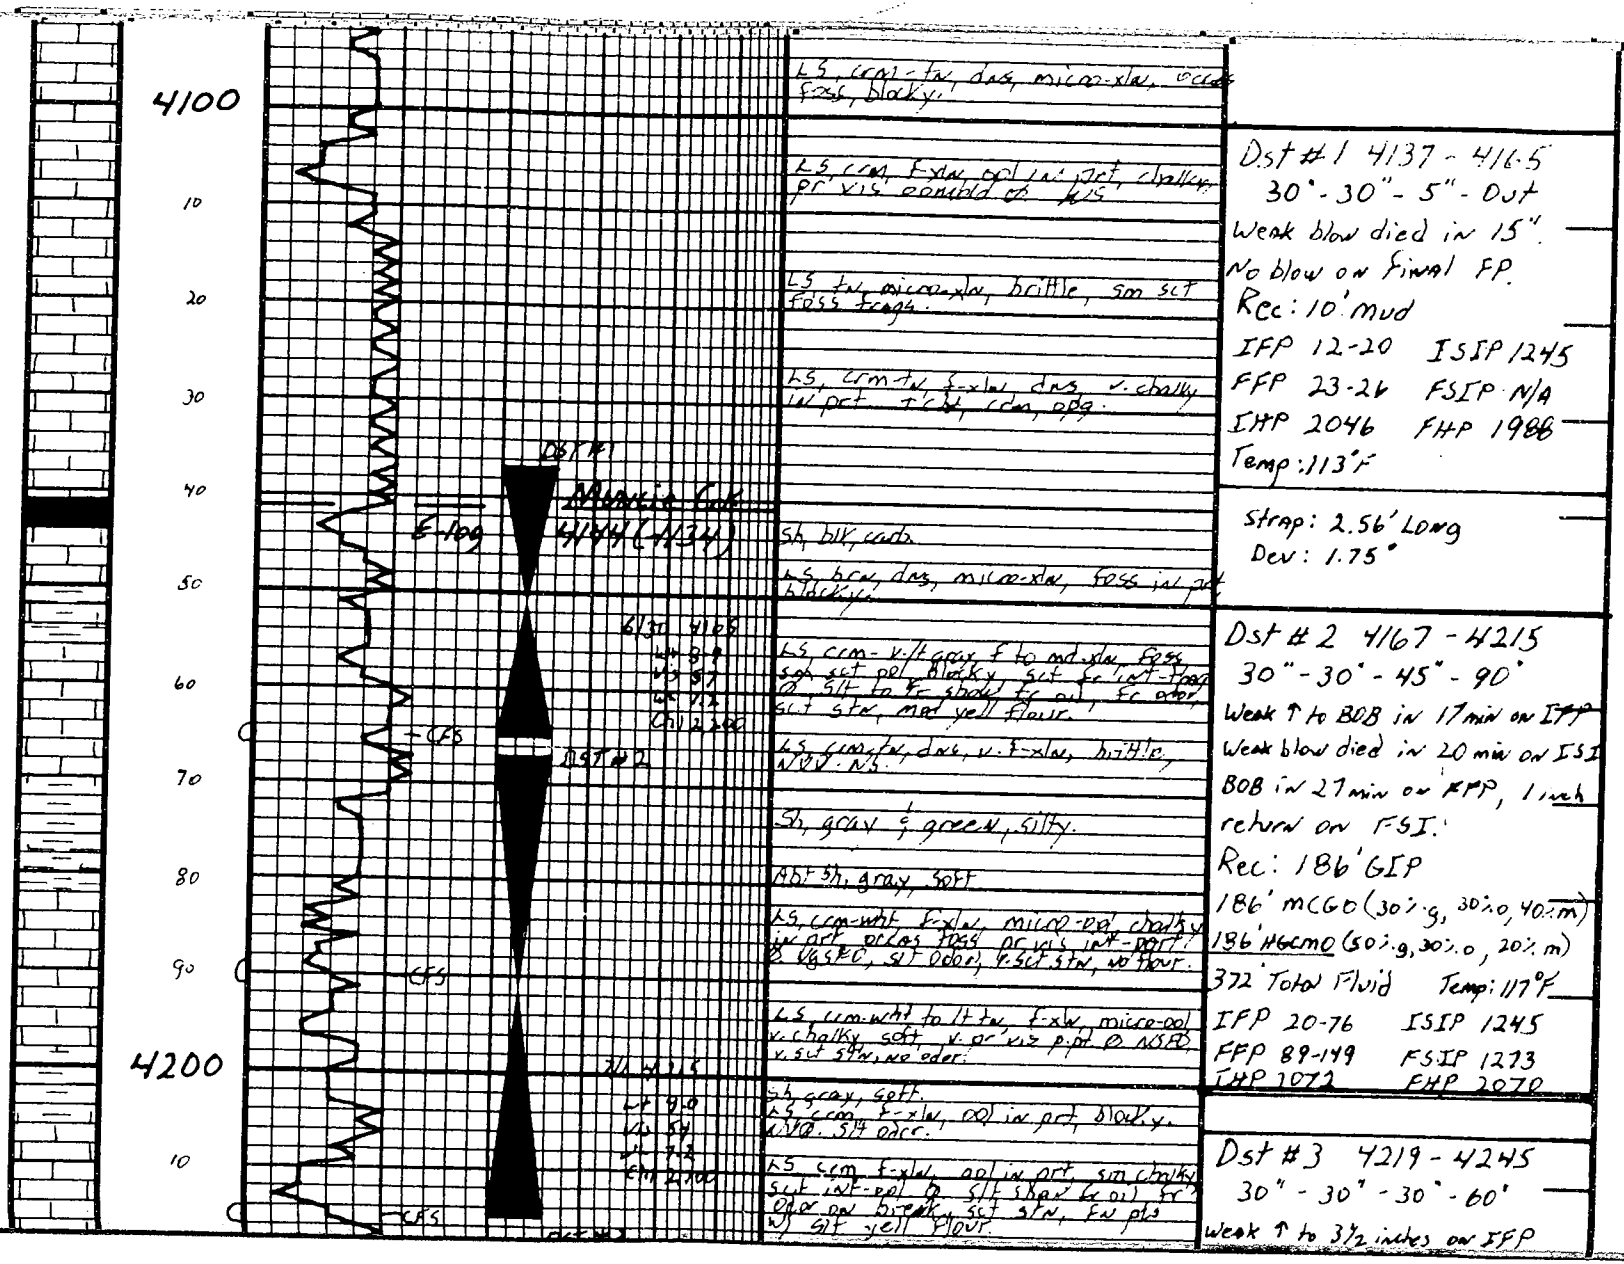 4100
10
20
30
40
50
60
70
80
90
4200
10
DST #1
Muncie Crk
E-log 4144 (-1134)
6/30 4165
Vs 57
Chl 2,200
CFS
DST #2
CFS
Wt 9.0
Vis 54
Chl 2,700
CFS
LS, crm-tn, dns, micro-xln, occas
foss, blocky.
LS, crm, f-xln, ool in prt, chalky,
pr vis oomold Ø NS
LS, tn, micro-xln, brittle, sm sct
foss frags.
LS, crm-tn, f-xln, dns, v. chalky
in prt. + cht, crm, opq.
Sh, blk, carb.
LS, brn, dns, micro-xln, foss in prt
blocky.
LS, crm - v. lt gray f to md-xln, foss,
sm sct ool, blocky, sct fr int-foss
Ø, slt to fr show fr oil, fr odor,
sct stn, mod yell flour.
LS, crm-tn, dns, v. f-xln, brittle,
NVØ. NS.
Sh, gray & green, silty.
Abt Sh, gray, soft
LS, crm-wht f-xln, micro-ool, chalky
in prt occas foss pr vis int-part
Ø VGSFO, slt odor, v. sct stn, no flour.
LS, crm-wht to lt tn, f-xln, micro-ool
v. chalky, soft, v. pr vis p.pt Ø NSFO,
v. sct stn, no odor.
Sh, gray, soft.
LS, crm, f-xln, ool in prt, blocky.
NVØ. slt odor.
LS, crm f-xln, ool in prt, sm chalky
sct int-ool Ø slt show fr oil fr
odor on break, sct stn, fn pts
w/ slt yell flour.
Dst #1 4137 - 4165
30" - 30" - 5" - Out
Weak blow died in 15".
No blow on final FP.
Rec: 10' mud
IFP 12-20 ISIP 1245
FFP 23-26 FSIP N/A
IHP 2046 FHP 1988
Temp: 113°F
Strap: 2.56' Long
Dev: 1.75°
Dst #2 4167 - 4215
30" - 30" - 45" - 90"
Weak ↑ to BOB in 17 min on IFP
Weak blow died in 20 min on ISI
BOB in 27 min on FFP, 1 inch
return on FSI.
Rec: 186' GIP
186' MCGO (30% g, 30% o, 40% m)
186' HGCMO (50% g, 30% o, 20% m)
372' Total Fluid Temp: 117°F
IFP 20-76 ISIP 1245
FFP 89-149 FSIP 1273
IHP 2072 FHP 2070
Dst #3 4219 - 4245
30" - 30" - 30" - 60"
Weak ↑ to 3 1/2 inches on IFP